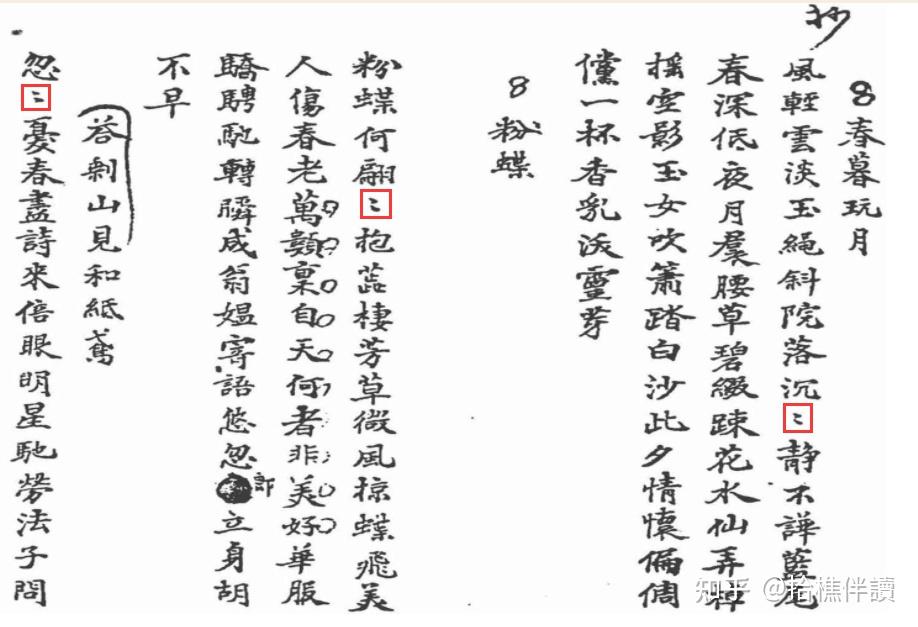 抄
8 春暮玩月
風輕雲淡玉繩斜院落沉〻靜不譁藍尾
春深低夜月羣腰草碧綴踈花水仙弄
摇空影玉女吹簫踏白沙此夕情懷偏倜
儻一杯香乳泼靈芽
8 粉蝶
粉蝶何翩〻抱蕊棲芳草微風掠蝶飛美
人傷春老萬類稟自天何者非美好華服
驕騁馳轉瞬成翁媪寄語悠忽郎立身胡
不早
答剩山見和紙鳶
忽〻憂春盡詩來倍眼明星馳勞法子問
知乎 @拾樵伴讀